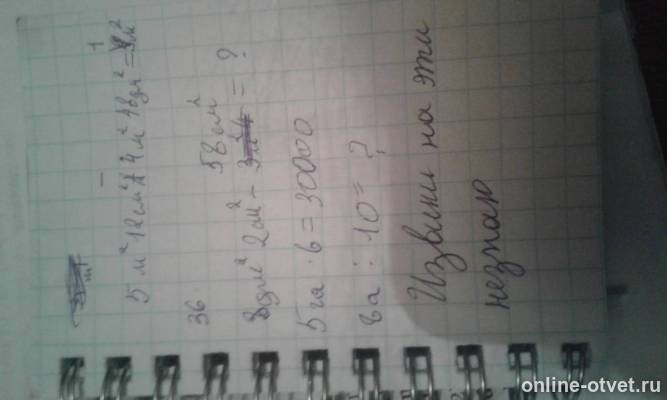 1
5 м² 12 см² 4 м² 48 дм² = м²
36.
58 см²
8 дм² 2 см² - = ?
5 га · 6 = 30000
8а : 10 = ?
Извини на эти
незнаю
online-otvet.ru